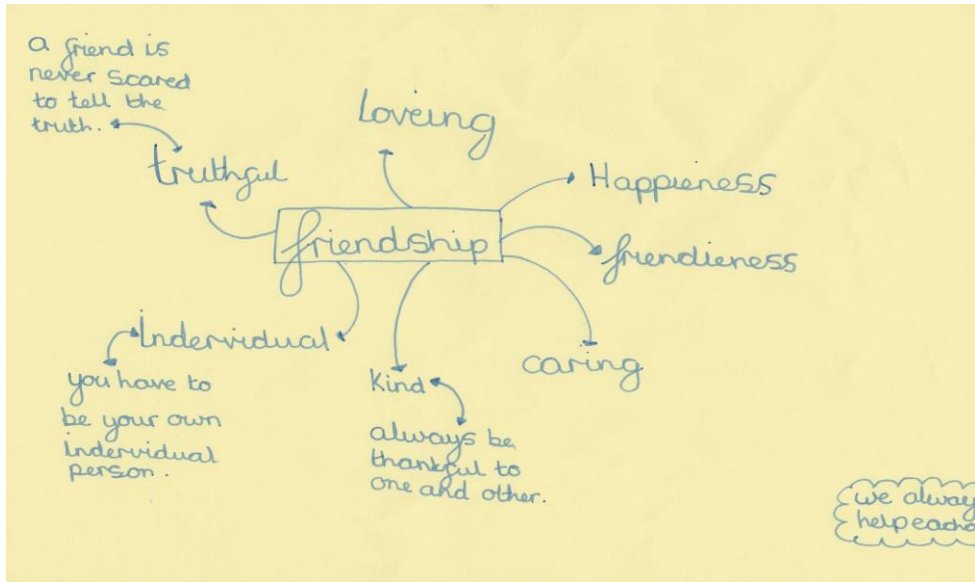 a friend is
never scared
to tell the
truth.
Loveing
truthful
Happieness
friendship
friendieness
Indervidual
caring
Kind
you have to
be your own
indervidual
person.
always be
thankful to
one and other.
we always
help eacho